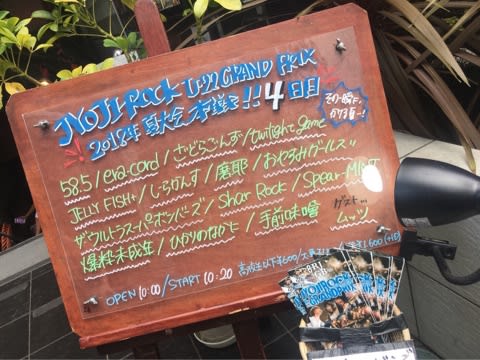 NOJI-ROCK U-22 GRAND PRIX
2018年 夏大会 本選!! 4日目
その一瞬に、かける夏ー!
585 / era-cord / さどらごんず / twilight game
JELLY FISH+ / しらかんす / 摩耶 / おやすみガールズ
ザ・ウルトラスーパーボンバーズ / Shar Rock / Spear-Mint
爆粋未成年 / ひかりのなかに / 手前味噌
ゲスト ムッツ
OPEN 10:00 / START 10:20 高校生以下 ¥600 / 大学生 ¥1,600 (+1D)
NOJIROCK
GRANDPRIX